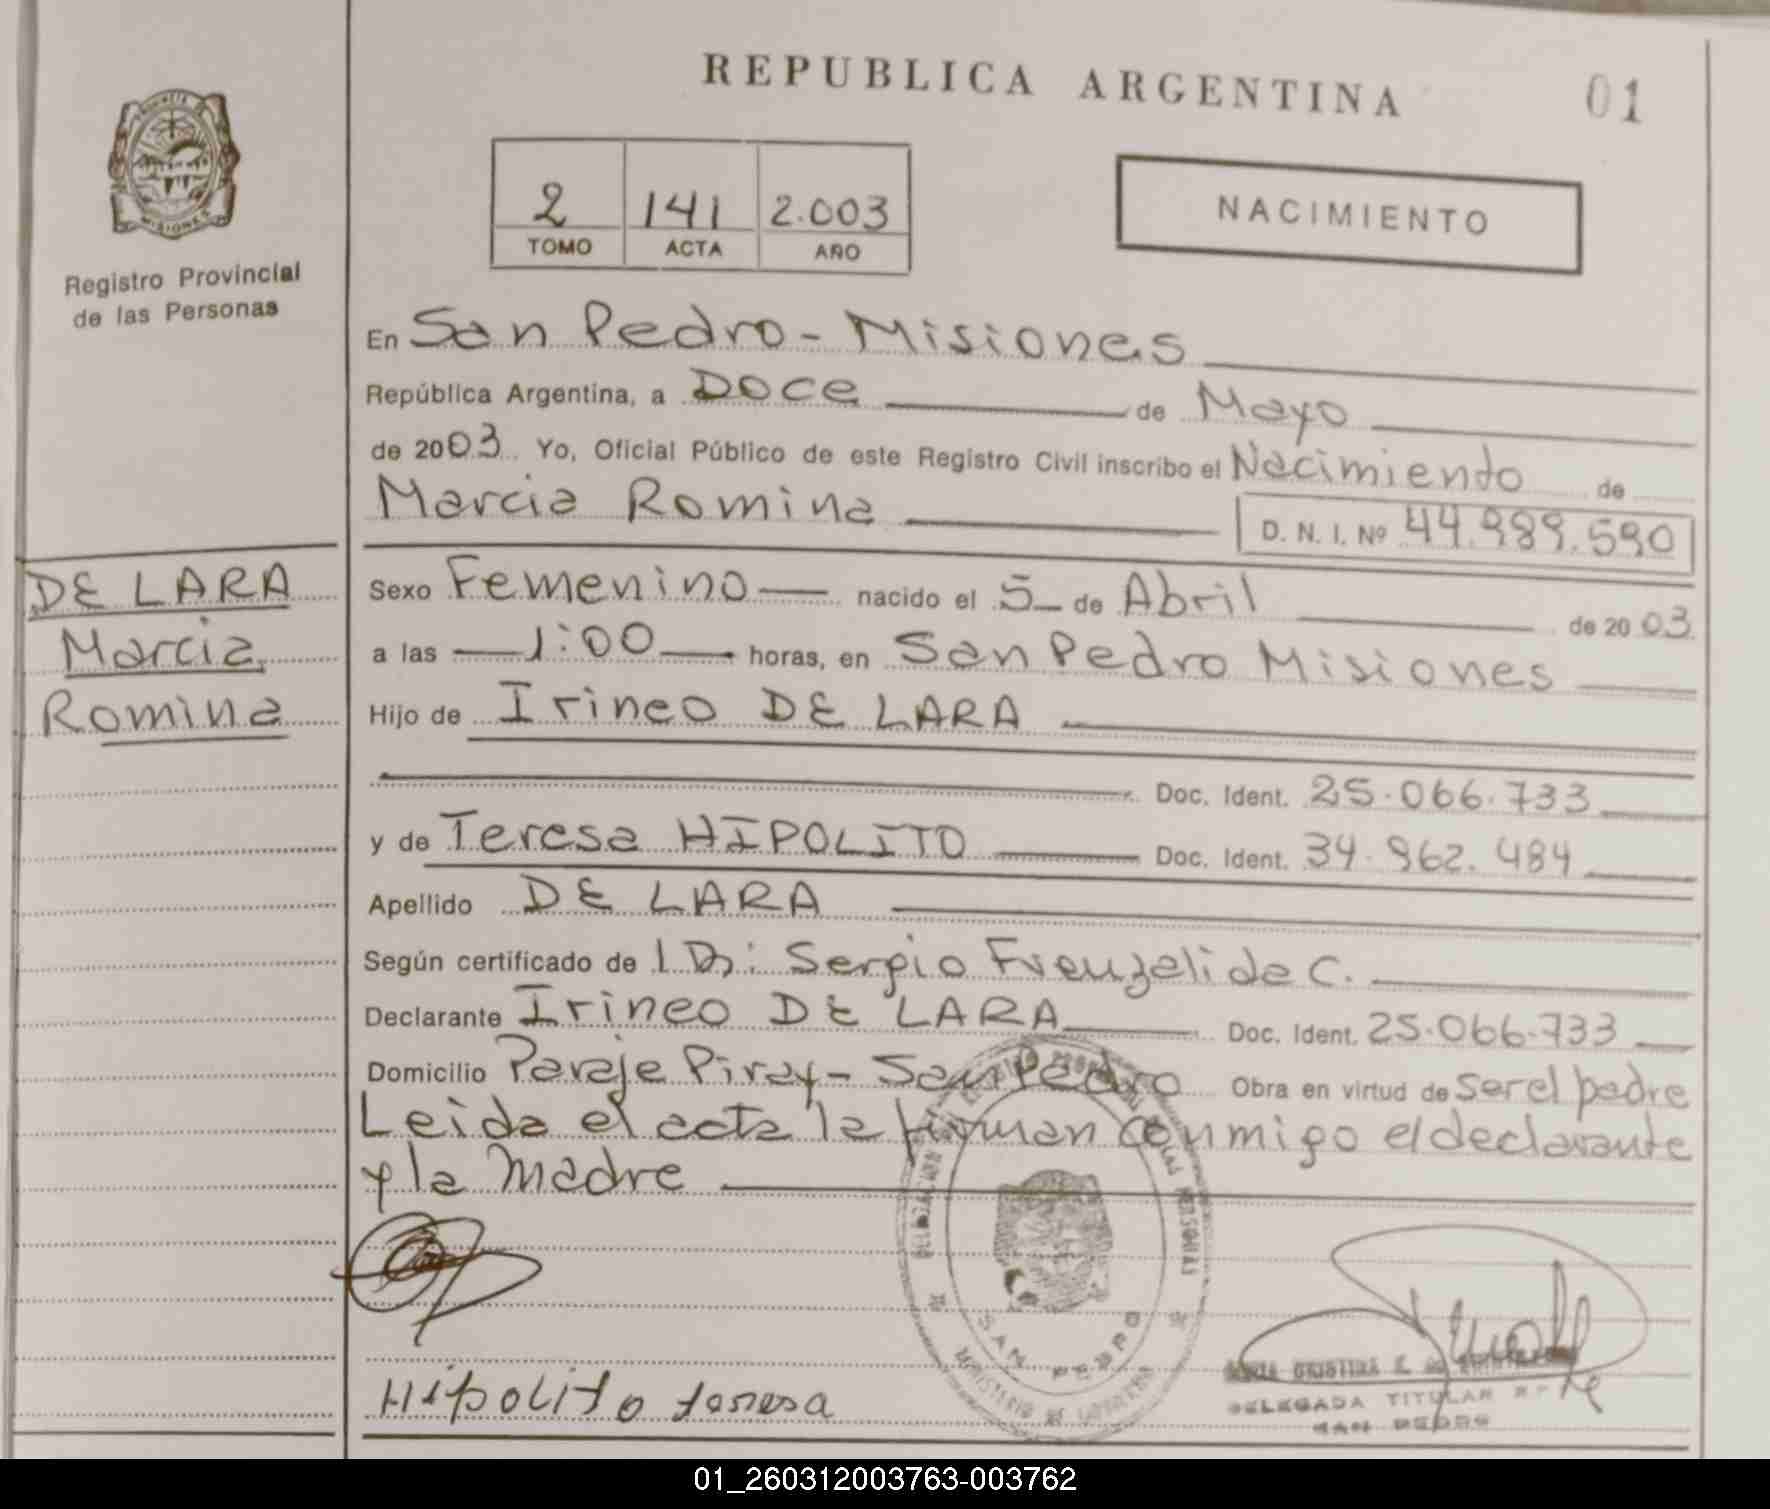 REPUBLICA ARGENTINA
01
PROVINCIA DE
MISIONES
Registro Provincial
de las Personas
2 141 2.003
TOMO ACTA AÑO
NACIMIENTO
En San Pedro - Misiones
República Argentina, a Doce de Mayo
de 2003. Yo, Oficial Público de este Registro Civil inscribo el Nacimiento de
Marcia Romina D. N. I. Nº 44.989.590
DE LARA
Marcia
Romina
Sexo Femenino nacido el 5 de Abril de 2003
a las 1:00 horas, en San Pedro Misiones
Hijo de Irineo DE LARA
Doc. Ident. 25.066.733
y de Teresa HIPOLITO Doc. Ident. 34.962.484
Apellido DE LARA
Según certificado de Sergio C.
Declarante Irineo DE LARA Doc. Ident. 25.066.733
Domicilio Paraje Piray - San Pedro Obra en virtud de ser el padre
Leida el acta la firman conmigo el declarante
y la Madre
SAN PEDRO
Hipolito teresa
DELEGADA TITULAR
SAN PEDRO
01_260312003763-003762